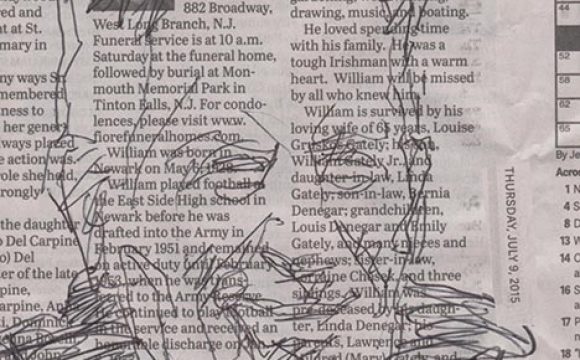 red and
t at St.
mary in
ny ways S
membered
ness to
her gener
lways placed
e action was.
ole she held,
rongly
the daughter
o Del Carpine
o) Del
er of the late
pine,
arpine, An
i, Dominick
John
882 Broadway,
West Long Branch, N.J.
Funeral service is at 10 a.m.
Saturday at the funeral home,
followed by burial at Mon-
mouth Memorial Park in
Tinton Falls, N.J. For condo-
lences, please visit www.
fiorefuneralhomes.com.
William was born in
Newark on May 6, 1928.
William played football
the East Side High school in
Newark before he was
drafted into the Army in
February 1951 and remained
on active duty until February
1953, when he was trans-
ferred to the Army Reserve.
He continued to play football
in the service and received an
honorable discharge on
drawing, music and boating.
He loved spending time
with his family. He was a
tough Irishman with a warm
heart. William will be missed
by all who knew him.
William is survived by his
loving wife of 65 years, Louise
Gately; his son,
William Gately Jr., and
daughter-in-law, Linda
Gately; son-in-law, Bernia
Denegar; grandchildren,
Louis Denegar and Emily
Gately, and many nieces and
nephews; sister-in-law,
Lorraine and three
siblings. William was
pre-deceased by his daugh-
ter, Linda Denegar; his
parents, Lawrence and
Mildred (Mary) and
THURSDAY, JULY 9, 2015
44
52
58
62
65
By Je
Acro
1 N
4 S
8 D
13 V
14 C
a
16 S
17 P
18 T